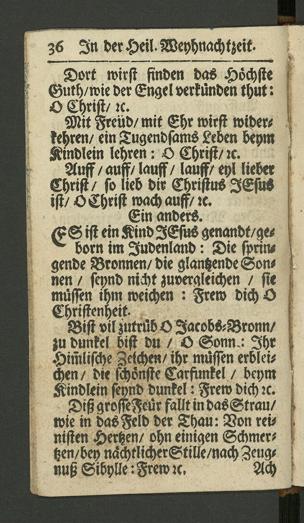 36 In der Heil. Weyhnachtzeit.
Dort wirst finden das Höchste
Guth/ wie der Engel verkünden thut:
O Christ/ ꝛc.
Mit Freüd/ mit Ehr wirst wider-
kehren/ ein Tugendsams Leben beym
Kindlein lehren: O Christ/ ꝛc.
Auff/ auff/ lauff/ lauff/ eyl lieber
Christ/ so lieb dir Christus JEsus
ist/ O Christ wach auff/ ꝛc.
Ein anders.
ES ist ein Kind JEsus genandt/ ge-
born im Judenland: Die sprin-
gende Bronnen/ die glantzende Son-
nen/ seynd nicht zuvergleichen/ sie
müssen ihm weichen: Frew dich O
Christenheit.
Bist vil zutrüb O Jacobs-Bronn/
zu dunkel bist du/ O Sonn: Ihr
Him̄lische Zeichen/ ihr müssen erblei-
chen/ die schönste Carfunkel/ beym
Kindlein seynd dunkel: Frew dich ꝛc.
Diß grosse Feür fallt in das Strau/
wie in das Feld der Thau: Von rei-
nisten Hertzen/ ohn einigen Schmer-
tzen/ bey nächtlicher Stille/ nach Zeug-
nuß Sibylle: Frew ꝛc. Ach